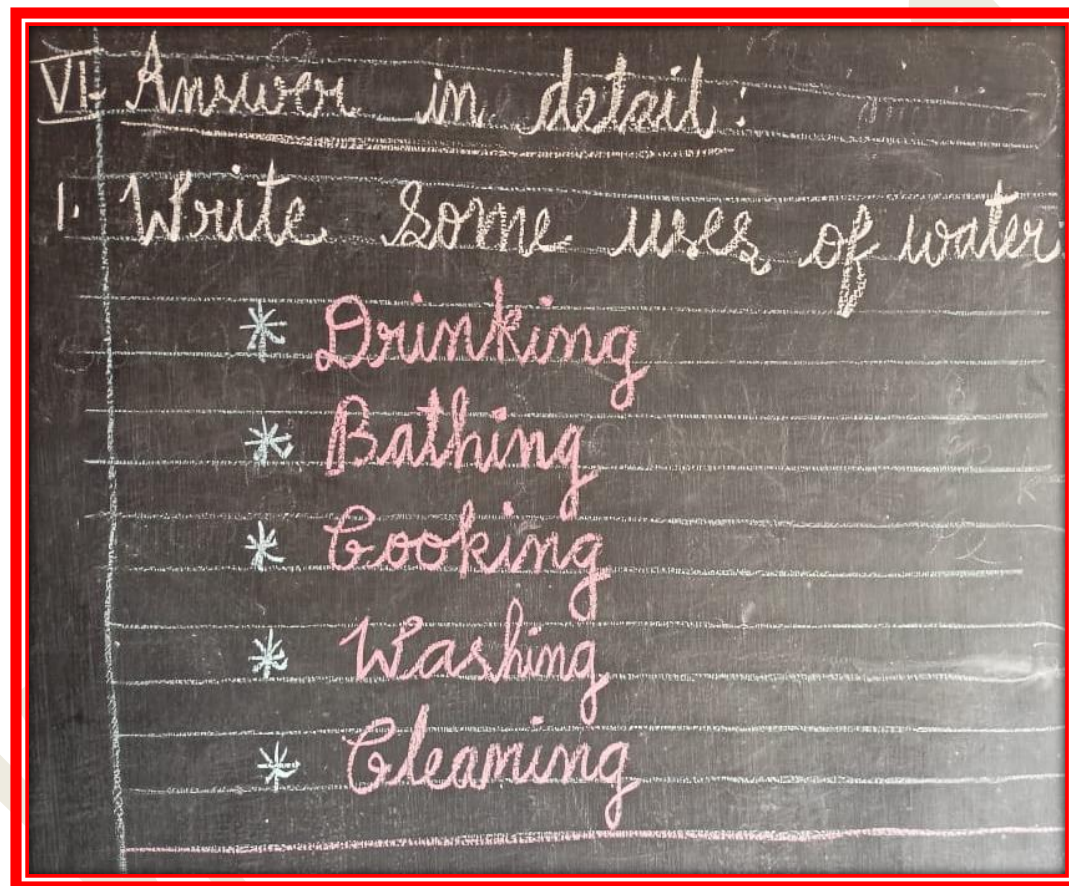 VI. Answer in detail:
1. Write some uses of water.
* Drinking
* Bathing
* Cooking
* Washing
* Cleaning